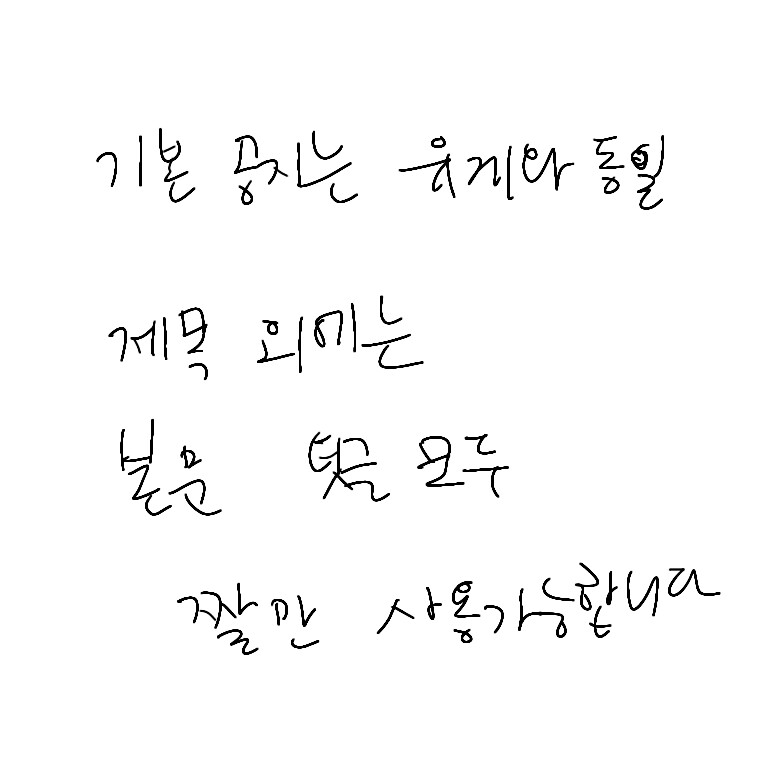 기본 공지는 유게와 동일
제목 외에는
본문 댓글 모두
짤만 사용가능합니다